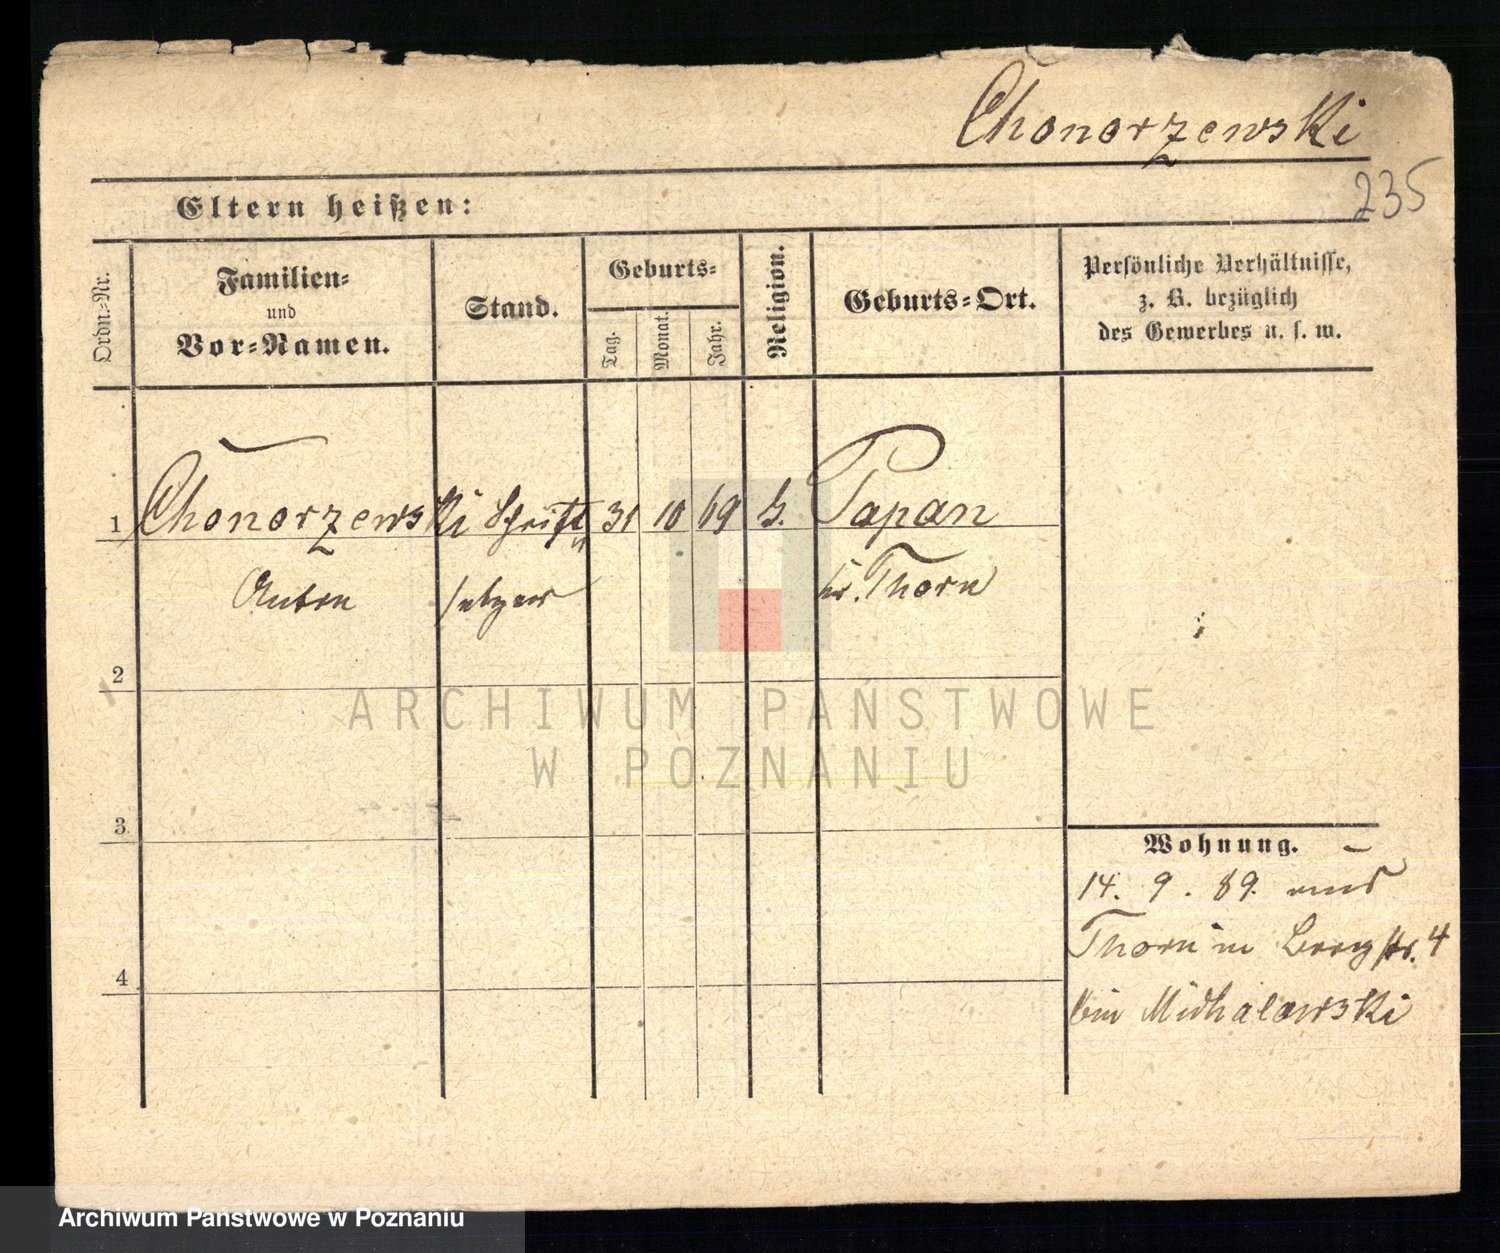 Chonorzewski
235
Eltern heißen:
Ordn.-Nr.
Familien-
und
Vor-Namen.
Stand.
Geburts-
Tag.
Monat.
Jahr.
Religion.
Geburts-Ort.
Persönliche Verhältnisse,
z. B. bezüglich
des Gewerbes u. s. w.
1 Chonorzewski Schrift 31 10 69 k. Papan
Anton setzer kr. Thorn
2
3
4
Wohnung.
14. 9. 89. aus
Thorn in Bergstr. 4
bei Michalowski
ARCHIWUM PAŃSTWOWE
W POZNANIU
Archiwum Państwowe w Poznaniu